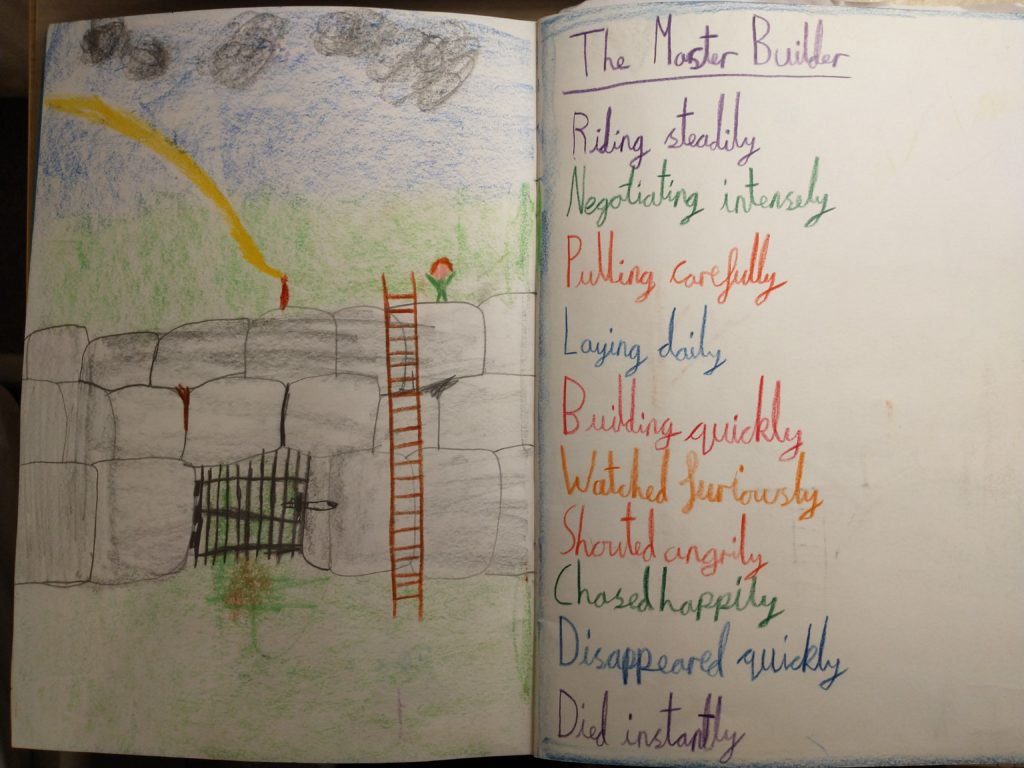 The Master Builder
Riding steadily
Negotiating intensely
Pulling carefully
Laying daily
Building quickly
Watched furiously
Shouted angrily
Chased happily
Disappeared quickly
Died instantly